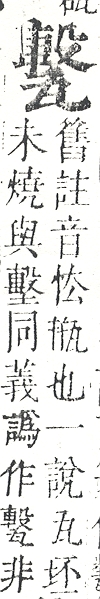 舊註音瓶也一說瓦坯
未燒與墼同義譌作非